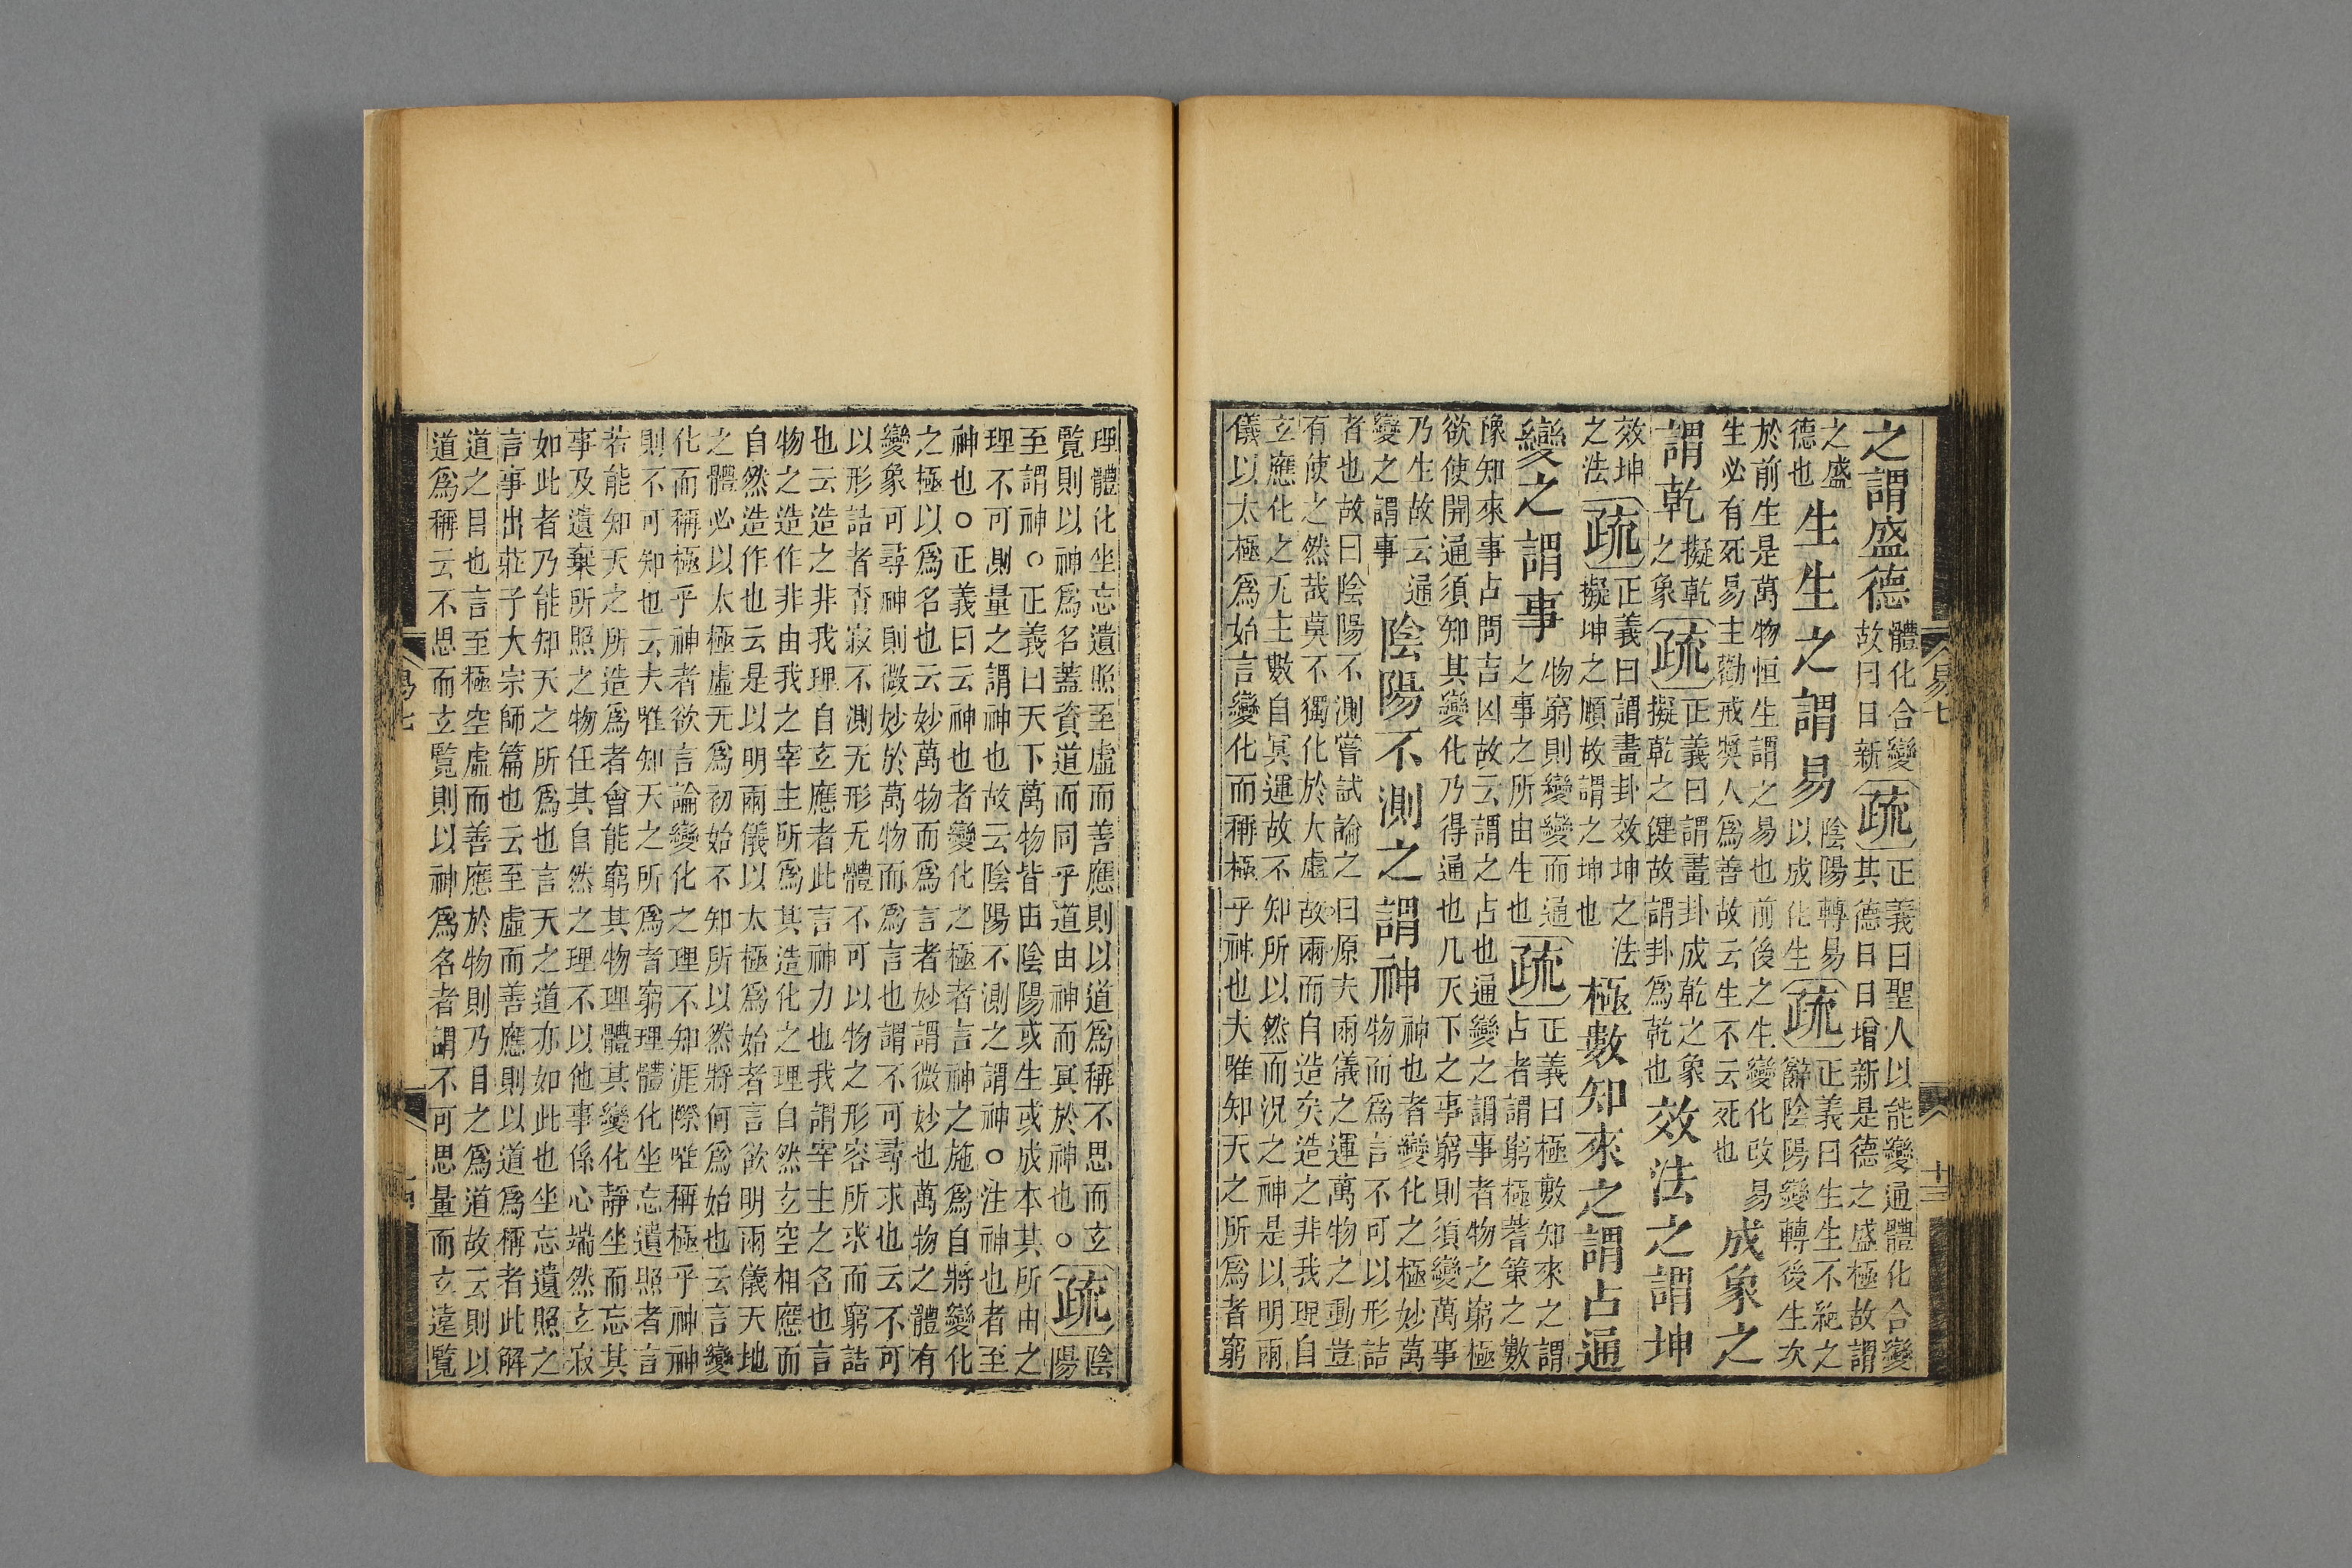 易七 十三
之謂盛德 體化合變故曰日新 疏 正義曰聖人以能變通體化合變
其德日日增新是德之盛極故謂
之盛德也 生生之謂易 陰陽轉易以成化生 疏 正義曰生生不絕之
辭陰陽變轉後生次
於前生是萬物恒生謂之易也前後之生變化改易
生必有死易主勸戒奬人爲善故云生不云死也 成象之
謂乾 擬乾之象 疏 正義曰謂畫卦成乾之象
擬乾之健故謂卦爲乾也 效法之謂坤
效坤之法 疏 正義曰謂畫卦效坤之法
擬坤之順故謂之坤也 極數知來之謂占通
變之謂事 物窮則變變而通之事之所由生也 疏 正義曰極數知來之謂
占者謂窮極蓍策之數
豫知來事占問吉凶故云謂之占也通變之謂事者物之窮極
欲使開通須知其變化乃得通也凡天下之事窮則須變萬事
乃生故云通變之謂事 陰陽不測之謂神 神也者變化之極妙萬
物而爲言不可以形詰
者也故曰陰陽不測嘗試論之曰原夫兩儀之運萬物之動豈
有使之然哉莫不獨化於大虛故兩而自造矣造之非我理自
玄應化之无主數自冥運故不知所以然而況之神是以明兩
儀以太極爲始言變化而稱極乎神也夫唯知天之所爲者窮
理體化坐忘遺照至虛而善應則以道爲稱不思而玄
覽則以神爲名蓋資道而同乎道由神而冥於神也○ 疏 陰陽
至謂神○正義曰天下萬物皆由陰陽或生或成本其所由之
理不可測量之謂神也故云陰陽不測之謂神○注神也者至
神也○正義曰云神也者變化之極者言神之施爲自將變化
之極以爲名也云妙萬物而爲言者妙謂微妙也萬物之體有
變象可尋神則微妙於萬物而爲言也謂不可尋求也云不可
以形詰者杳寂不測无形无體不可以物之形容所求而窮詰
也云造之非我理自玄應者此言神力也我謂宰主之名也言
物之造作非由我之宰主所爲其造化之理自然玄空相應而
自然造作也云是以明兩儀以太極爲始者言欲明兩儀天地
之體必以太極虛无爲初始不知所以然將何爲始也云言變
化而稱極乎神者欲言論變化之理不知涯際唯稱極乎神神
則不可知也云夫唯知天之所爲者窮理體化坐忘遺照者言
若能知天之所造爲者會能窮其物理體其變化靜坐而忘其
事及遺棄所照之物任其自然之理不以他事係心端然立寂
如此者乃能知天之所爲也言天之道亦如此也坐忘遺照之
言事出莊子大宗師篇也云至虛而善應則以道爲稱者此解
道之目也言至極空虛而善應於物則乃目之爲道故云則以
道爲稱云不思而玄覽則以神爲名者謂不可思量而玄遠覽
易七